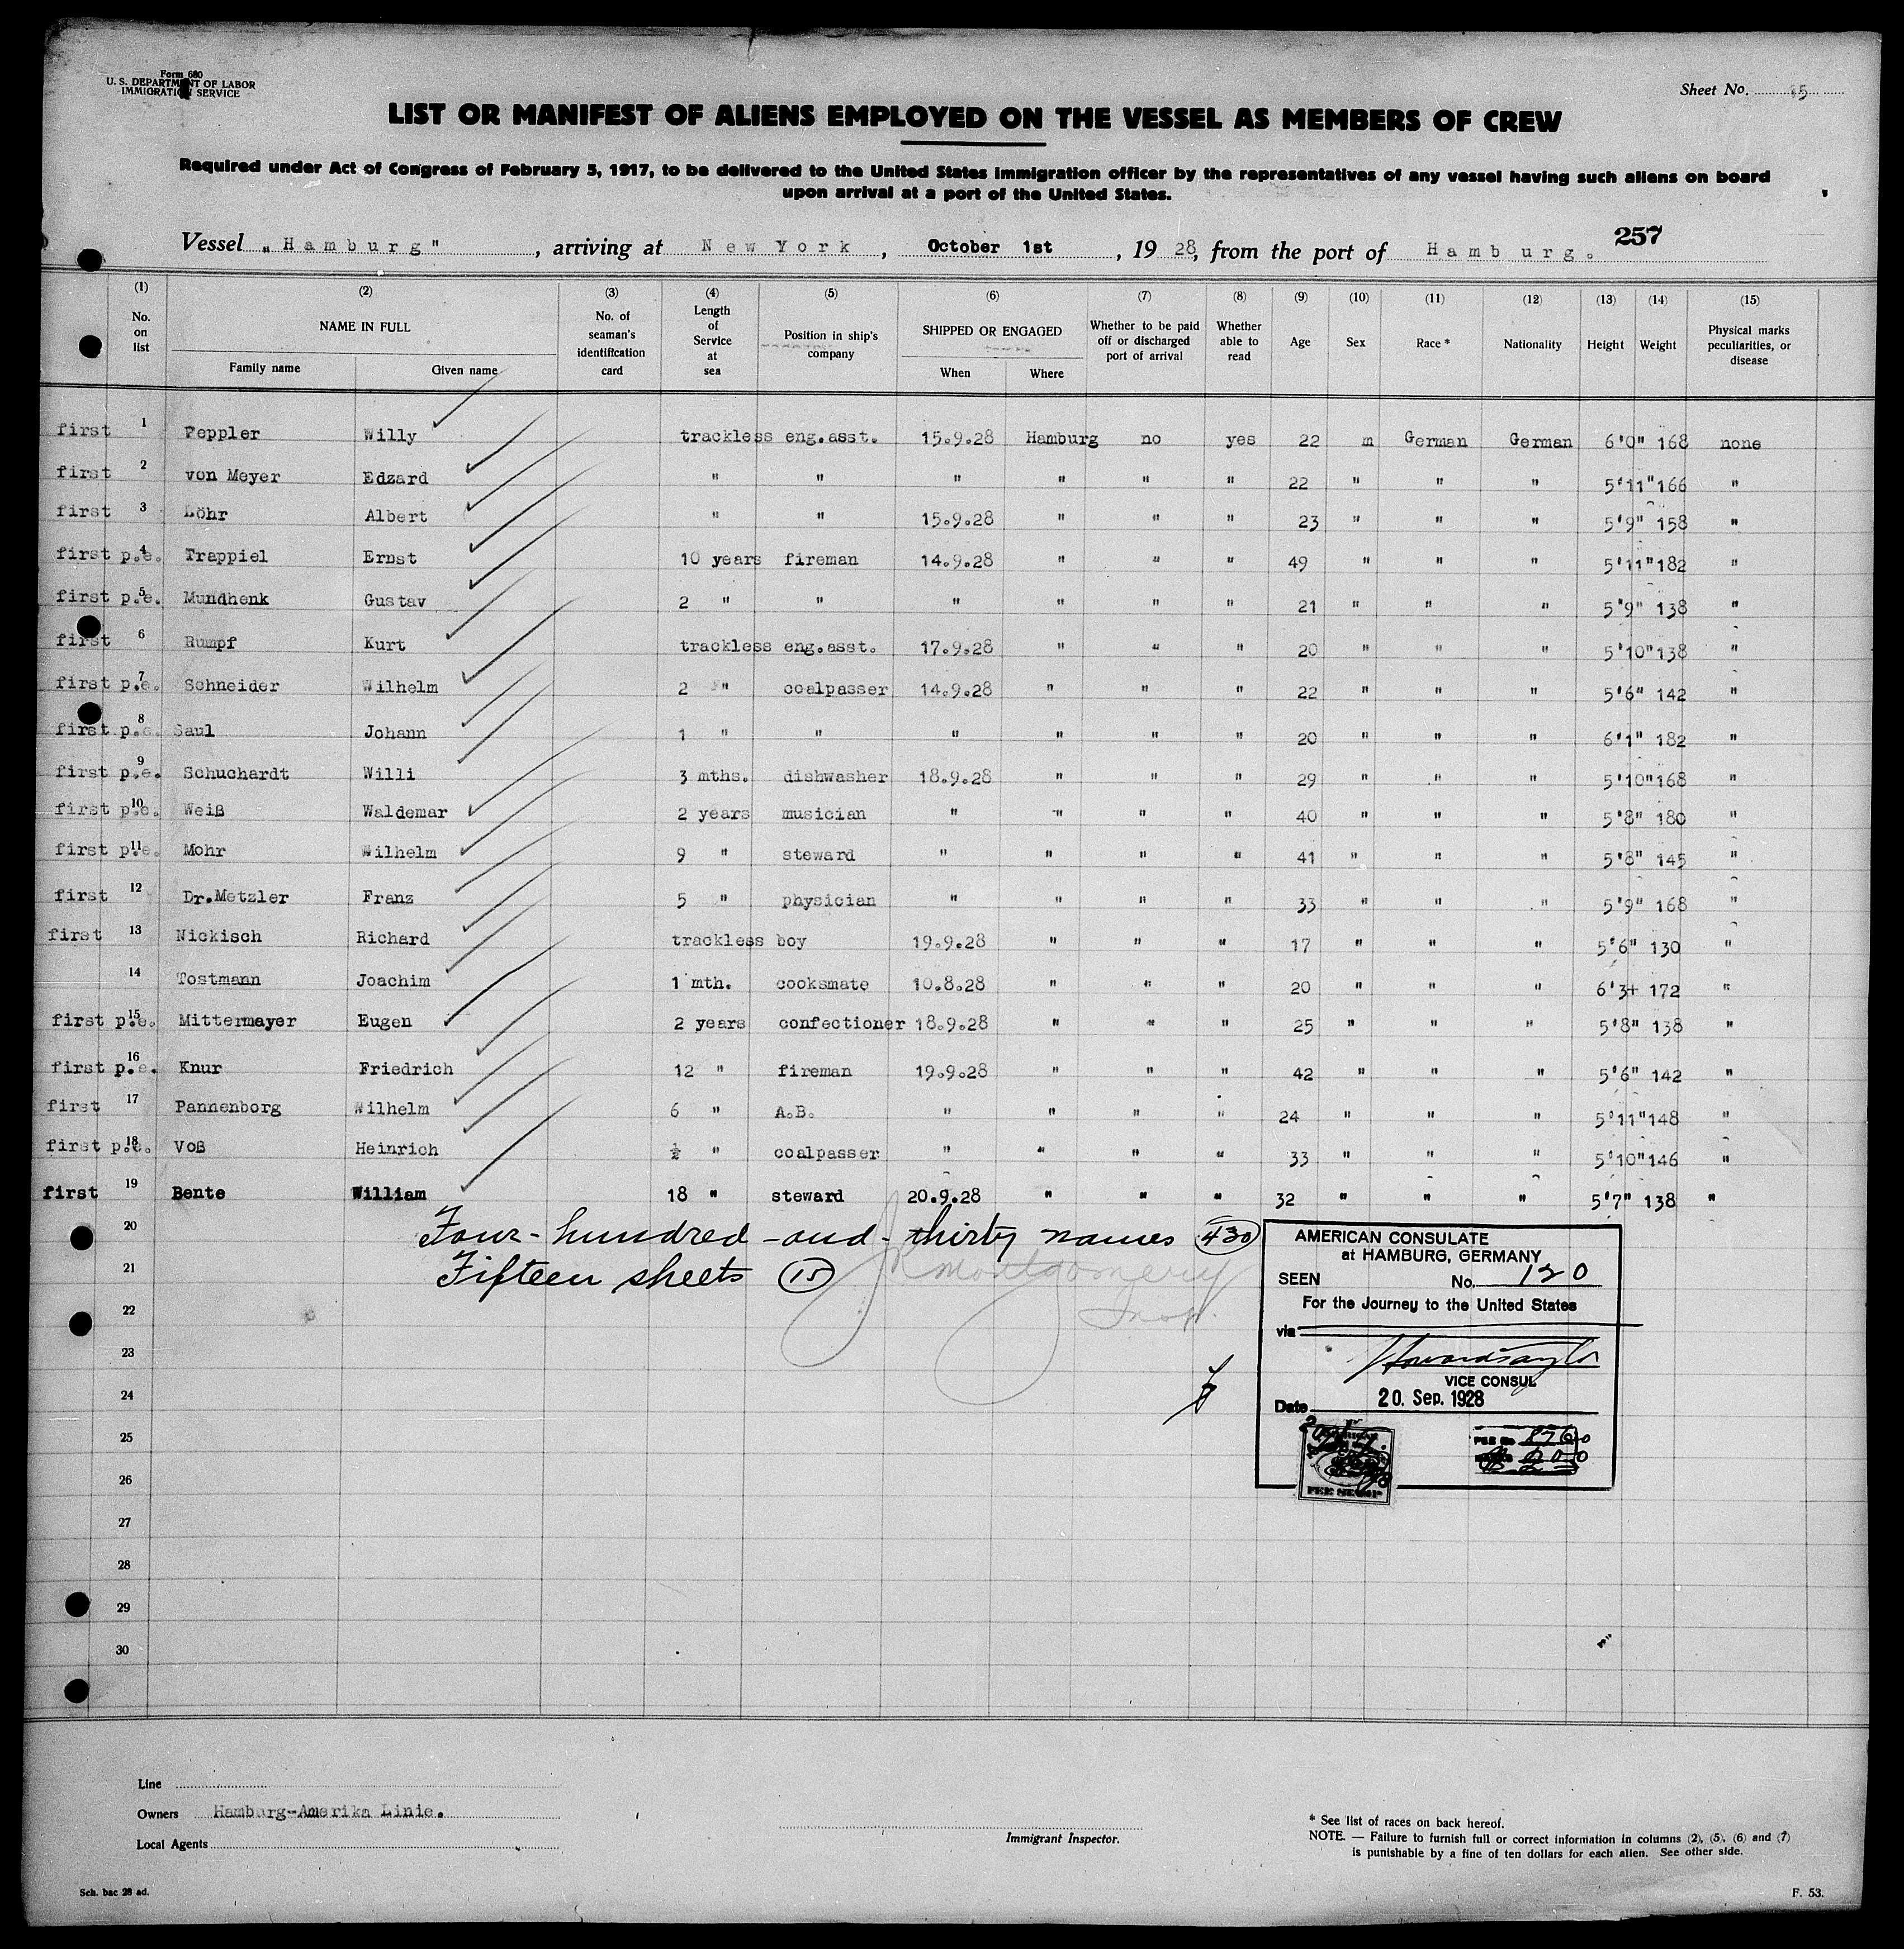 Form 680
U. S. DEPARTMENT OF LABOR
IMMIGRATION SERVICE
Sheet No. 15
LIST OR MANIFEST OF ALIENS EMPLOYED ON THE VESSEL AS MEMBERS OF CREW
Required under Act of Congress of February 5, 1917, to be delivered to the United States immigration officer by the representatives of any vessel having such aliens on board
upon arrival at a port of the United States.
257
Vessel „Hamburg", arriving at New York, October 1st, 1928, from the port of Hamburg.
(1) (2) (3) (4) (5) (6) (7) (8) (9) (10) (11) (12) (13) (14) (15)
No. on list NAME IN FULL Family name Given name No. of seaman's identification card Length of Service at sea Position in ship's company SHIPPED OR ENGAGED When Where Whether to be paid off or discharged port of arrival Whether able to read Age Sex Race * Nationality Height Weight Physical marks peculiarities, or disease
first 1 Peppler Willy trackless eng.asst. 15.9.28 Hamburg no yes 22 m German German 6'0" 168 none
first 2 von Meyer Edzard " " " " " " 22 " " " 5'11" 166 "
first 3 Löhr Albert " " 15.9.28 " " " 23 " " " 5'9" 158 "
first p.e. 4 Trappiel Ernst 10 years fireman 14.9.28 " " " 49 " " " 5'11" 182 "
first p.e. 5 Mundhenk Gustav 2 " " " " " " 21 " " " 5'9" 138 "
first 6 Rumpf Kurt trackless eng.asst. 17.9.28 " " " 20 " " " 5'10" 138 "
first p.e. 7 Schneider Wilhelm 2 " coalpasser 14.9.28 " " " 22 " " " 5'6" 142 "
first p.e. 8 Saul Johann 1 " " " " " " 20 " " " 6'1" 182 "
first p.e. 9 Schuchardt Willi 3 mths. dishwasher 18.9.28 " " " 29 " " " 5'10" 168 "
first p.e. 10 Weiß Waldemar 2 years musician " " " " 40 " " " 5'8" 180 "
first p.e. 11 Mohr Wilhelm 9 " steward " " " " 41 " " " 5'8" 145 "
first 12 Dr.Metzler Franz 5 " physician " " " " 33 " " " 5'9" 168 "
first 13 Nickisch Richard trackless boy 19.9.28 " " " 17 " " " 5'6" 130 "
14 Tostmann Joachim 1 mth. cooksmate 10.8.28 " " " 20 " " " 6'3+ 172 "
first p.e. 15 Mittermayer Eugen 2 years confectioner 18.9.28 " " " 25 " " " 5'8" 138 "
first p.e. 16 Knur Friedrich 12 " fireman 19.9.28 " " " 42 " " " 5'6" 142 "
first 17 Pannenborg Wilhelm 6 " A.B. " " " " 24 " " " 5'11" 148 "
first p.e. 18 Voß Heinrich ½ " coalpasser " " " " 33 " " " 5'10" 146 "
first 19 Bente William 18 " steward 20.9.28 " " " 32 " " " 5'7" 138 "
20 Four-hundred-and-thirty names 430
21 Fifteen sheets 15
Montgomery
Insp.
22
23
24
25
26
27
28
29
30
AMERICAN CONSULATE
at HAMBURG, GERMANY
SEEN No. 120
For the Journey to the United States
via
VICE CONSUL
Date 20. Sep. 1928
FEE No 8760
FEE STAMP
Line
Owners Hamburg-Amerika Linie.
Local Agents
Immigrant Inspector.
* See list of races on back hereof.
NOTE. — Failure to furnish full or correct information in columns (2), (5), (6) and (7)
is punishable by a fine of ten dollars for each alien. See other side.
Sch. bac 28 ad.
F. 53.